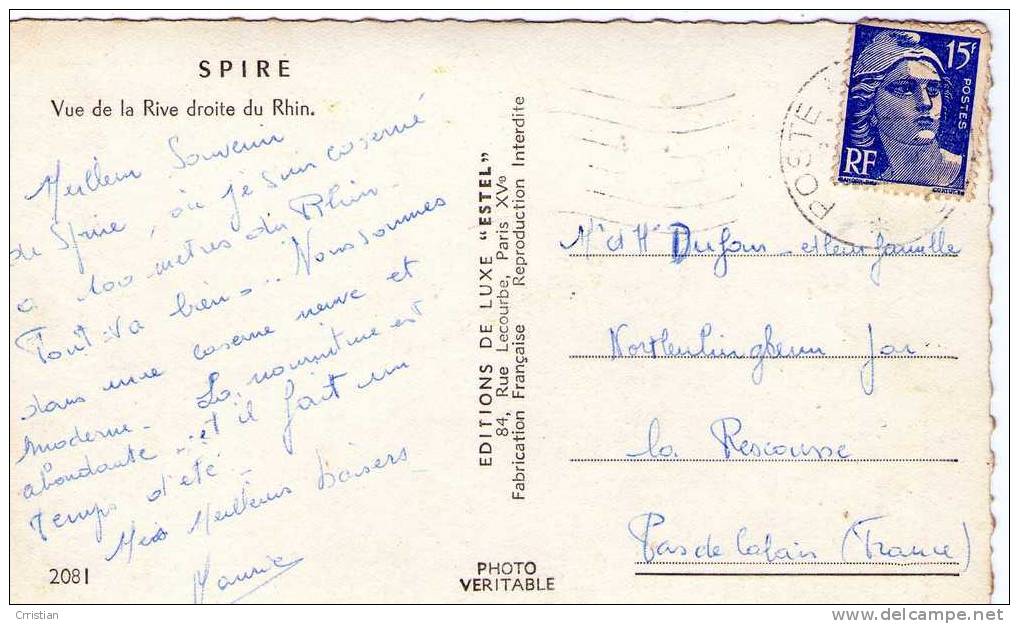 SPIRE
Vue de la Rive droite du Rhin.
Meilleur Souvenir
de Spire, où je suis caserné
a 100 mètres du Rhin -
Tout va bien... Nous sommes
dans une caserne neuve et
moderne - La nourriture est
abondante... et il fait un
temps d'été -
Mes Meilleurs baisers -
Maurice
2081
EDITIONS DE LUXE "ESTEL"
84, Rue Lecourbe, Paris XVe
Fabrication Française Reproduction Interdite
PHOTO
VERITABLE
POSTE
15F
POSTES
RF
Mr et Me Dufour et leur famille
Nortleulinghem par
la Recousse
Pas de Calais (France)
Cristian
www.delcampe.net